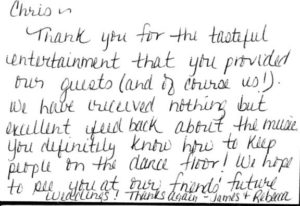 Chris ~
Thank you for the tasteful
entertainment that you provided
our guests (and of course us!).
We have received nothing but
excellent feed back about the music
You definitely know how to keep
people on the dance floor! We hope
to see you at our friends' future
weddings! Thanks again - James & Rebecca